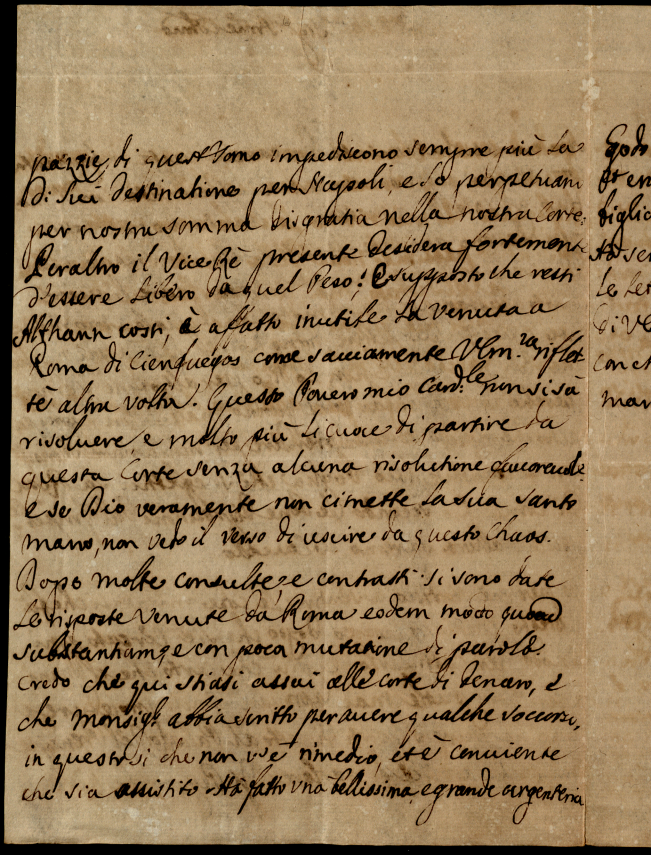 pazzie di quest'Uomo impediscono sempre più la
di Lui destinatione per Napoli, e lo perpetuano
per nostra somma disgratia nella nostra Corte.
Peraltro il Vice Rè presente desidera fortemente
d'essere libero da quel Peso; e supposto che resti
Althann costì, è affatto inutile la venuta a
Roma di Cienfuegos come saviamente V. Em.za riflet
tè altra volta. Questo Povero mio Card.le non si sà
risolvere, e molto più li cuoce di partire da
questa Corte senza alcuna risolutione favorevole
e se Dio veramente non ci mette la sua santa
mano, non vedo il verso di uscire da questo Chaos.
Dopo molte consulte, e contrasti si sono date
le risposte venute da Roma eodem modo quoad
substantiam, e con poca mutatione di parole.
Credo che qui stiasi assai alle corte di denaro, e
che Monsig.r abbia scritto per avere qualche soccorso,
in questo sì che non v'è rimedio, et è conviente
che sia assistito. Hà fatto una bellissima, e grande argenteria
Godo
figlio
Hà ser
le let
di Ve
con ch
man